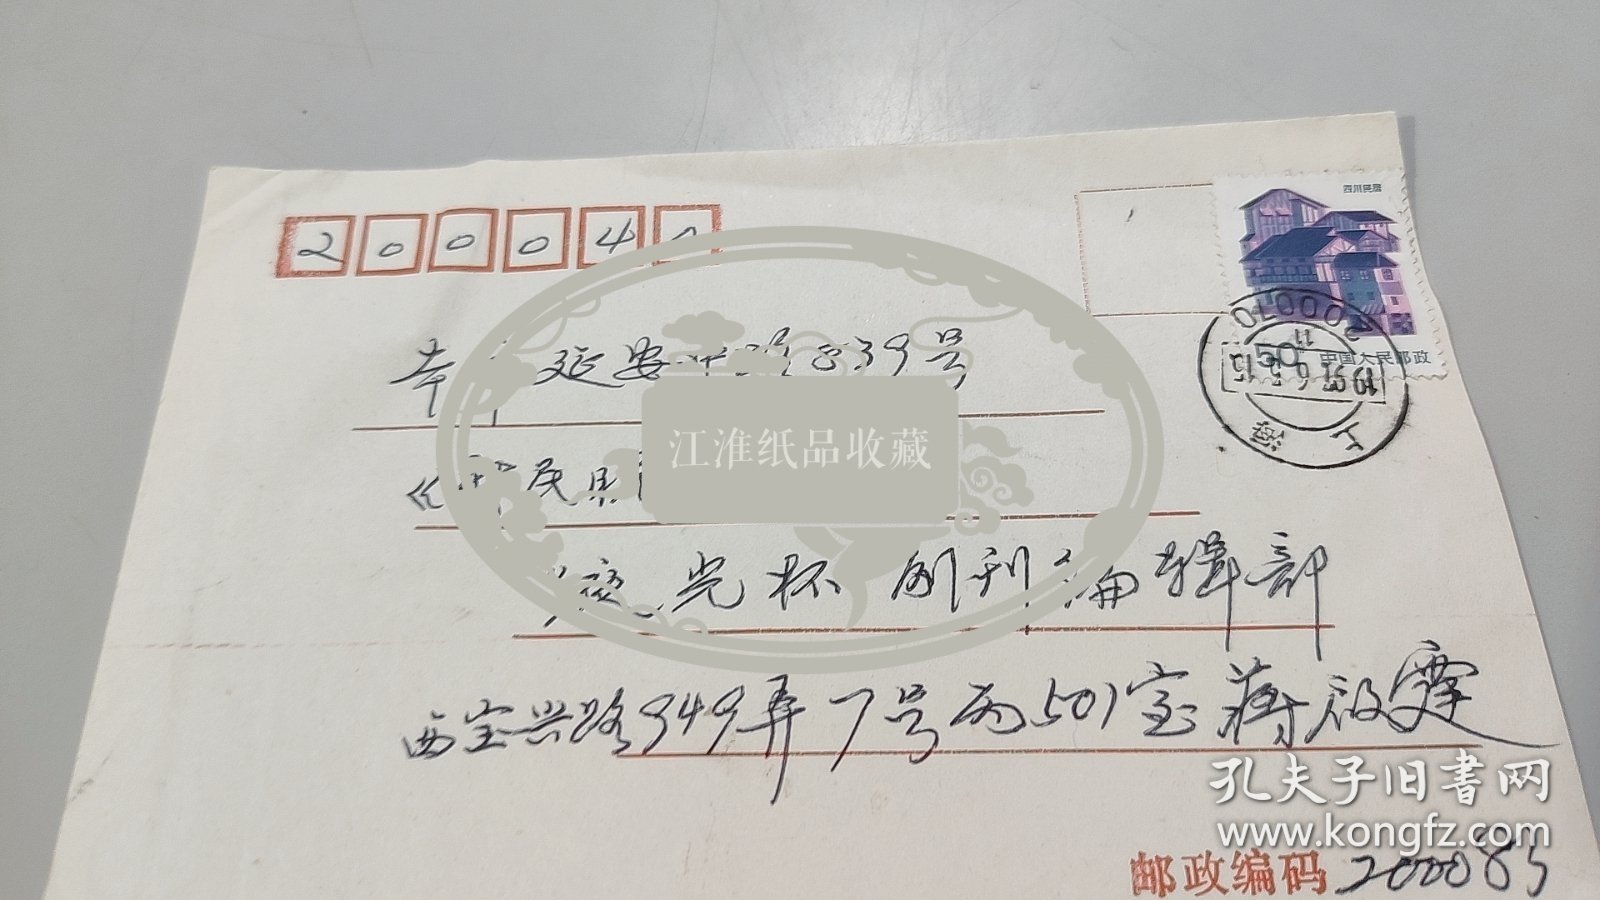 200040
四川民居
50 中国人民邮政
200010
11
1997.6.3.15
上海
本市延安中路839号
《新民晚
江淮纸品收藏
夜光杯副刊编辑部
西宝兴路949弄7号内501室蒋启霆
孔夫子旧书网
www.kongfz.com
邮政编码 200083